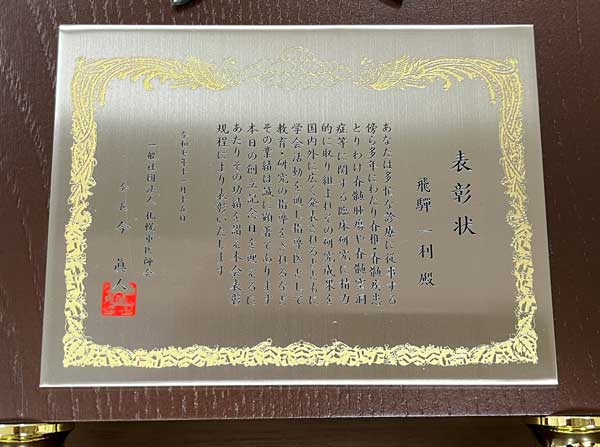 表彰状
飛騨一利殿
あなたは多忙な診療に従事する
傍ら多年にわたり脊椎・脊髄疾患
とりわけ脊髄腫瘍や脊髄空洞
症等に関する臨床研究に精力
的に取り組まれその研究成果を
国内外に広く発表されるとともに
学会活動を通し指導医として
教育・研究の指導をされるなど
その業績は誠に顕著であります
本日の創立記念日を迎えるに
あたりその功績を讃え本会表彰
規程により表彰いたします
令和七年十二月十五日
一般社団法人 札幌市医師会
会長 今 眞人